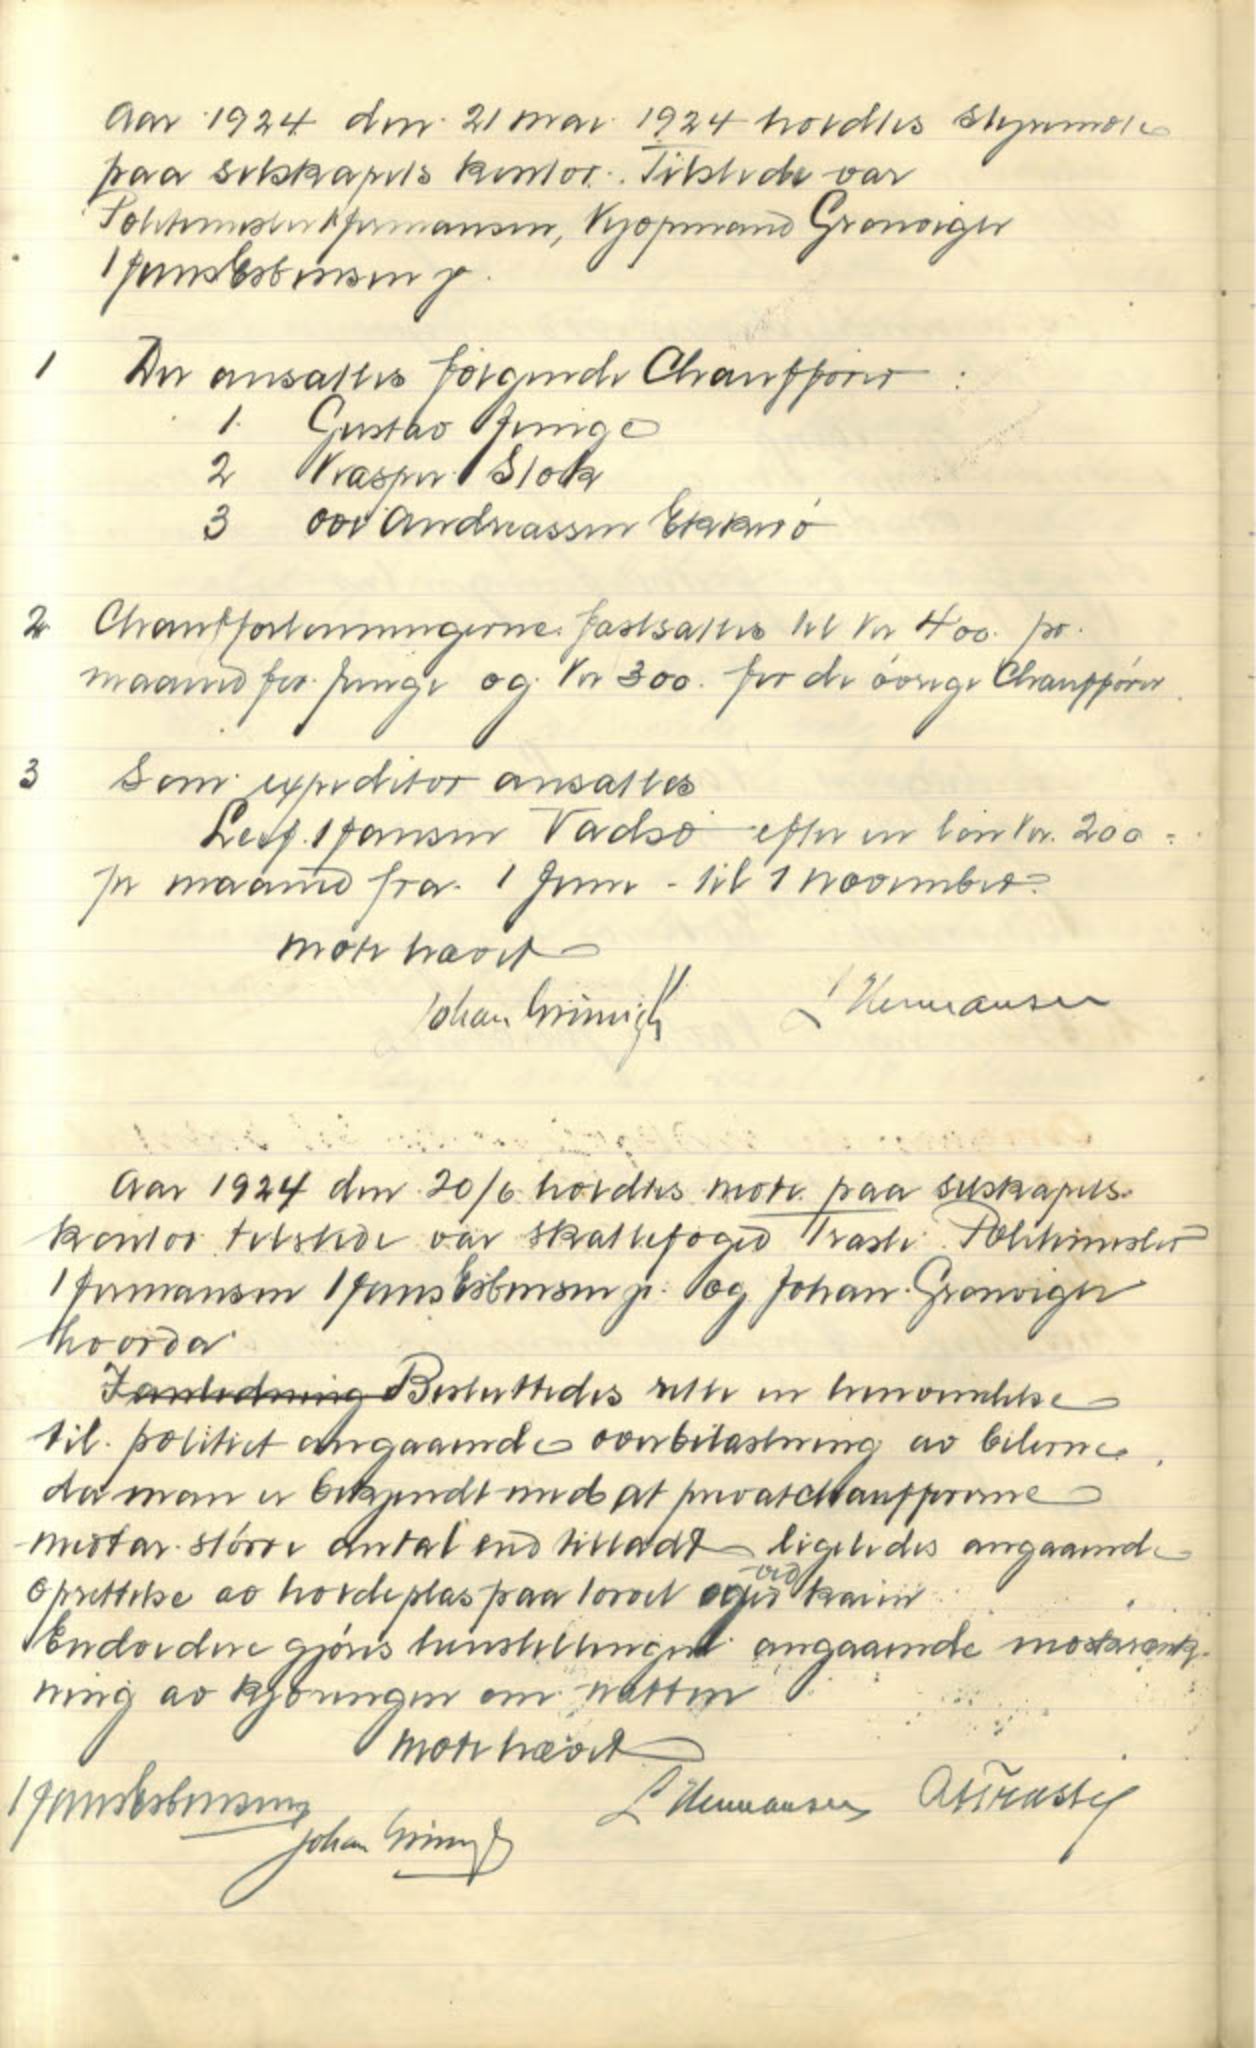 Aar 1924 den 21 mai 1924 holdtes styremøte
paa selskapets kontor. Tilstede var
Politimester Hermansen, Kjøpmand Grønvigh
Hans Esbensen jr.
1 Der ansattes følgende Chauffører :
1. Gustav Jenige
2 Kasper Stok
3 Ovi Andreassen Ekkerö
2 Chaufførlønningerne fastsattes til Kr 400. pr.
maaned for Jenige og Kr 300. for de övrige Chauffører.
3 Som expeditør ansattes
Leif Hansen Vadsø efter en løn Kr. 200.-
pr maaned fra 1 Juni - til 1 november.
Møte hævet
Johan Grønvigh L Hermansen
Aar 1924 den 20/6 holdtes møte paa selskapets
kontor tilstede var skattefoged Trasti Politimester
Hermansen Hans Esbensen jr. og Johan Grønvigh
hvorda
I anledning Besluttedes rette en henvendelse
til politiet angaaende overbelastning av bilerne,
da man er bekjendt med at privatchaufførerne
medtar større antal end tilladt ligeledes angaaende
oprettelse av holdeplas paa torvet og ved kaien
Endvidere gjöres henstillinger angaaende
ning av kjøringen om natten
Møte hævet
Hans Esbensen jr L Hermansen A Trasti
Johan Grønvigh